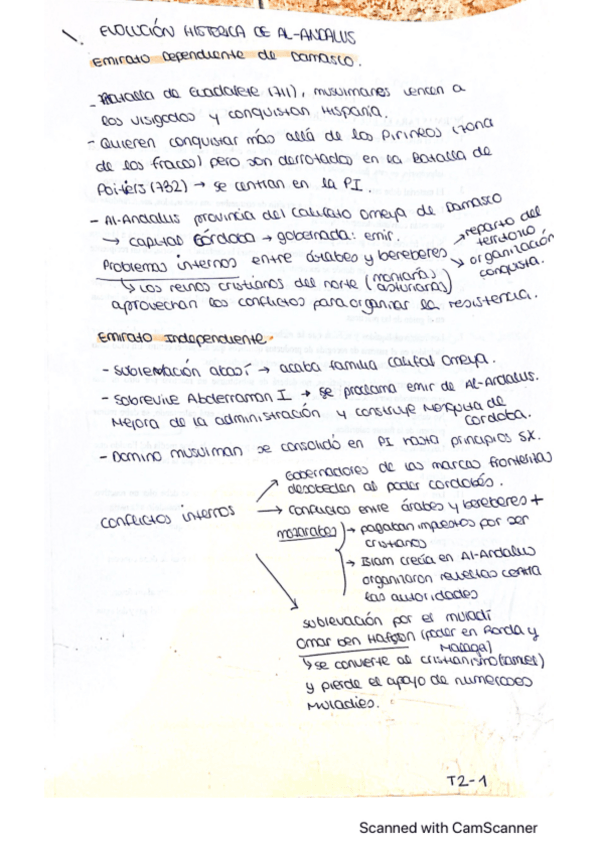 1. EVOLUCIÓN HISTÓRICA DE AL-ANDALUS
Emirato Dependiente de Damasco.
- Batalla de Guadalete (711), musulmanes vencen a
los visigodos y conquistan Hispania.
- Quieren conquistar más allá de los Pirineos (zona
de los francos) pero son derrotados en la Batalla de
Poitiers (732) → se centran en la PI.
- Al-Andalus provincia del califato omeya de Damasco
→ capital Córdoba → gobernada: emir.
Problemas internos entre árabes y bereberes → reparto del
territorio
→ organización
conquista.
↳ Los reinos cristianos del norte (montañas
asturianas)
aprovechan los conflictos para organizar la resistencia.
Emirato Independiente.
- Sublevación abasí → acaba familia califal omeya.
- Sobrevive Abderramán I → se proclama emir de Al-Andalus.
Mejora de la administración y construye Mezquita de
Córdoba.
- Dominio musulmán se consolidó en PI hasta principios SX.
Conflictos internos
→ Gobernadores de las marcas fronterizas
desobedecen al poder cordobés.
→ Conflictos entre árabes y bereberes +
mozárabes → pagaban impuestos por ser
cristianos
→ Islam crecía en Al-Andalus
organizaron revueltas contra
las autoridades
sublevación por el muladí
Omar ben Hafsun (poder en Ronda y
Málaga)
↳ se convierte al cristianismo
y pierde el apoyo de numerosos
muladíes.
T2-1
Scanned with CamScanner